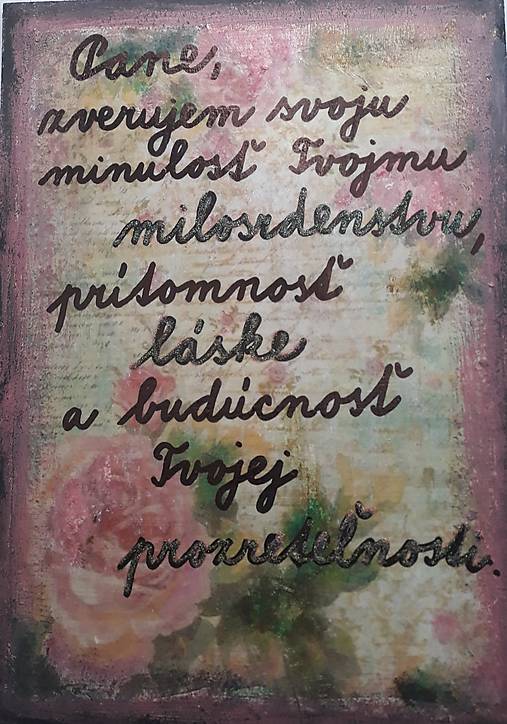 Pane,
zverujem svoju
minulosť Tvojmu
milosrdenstvu,
prítomnosť
láske
a budúcnosť
Tvojej
prozreteľnosti.